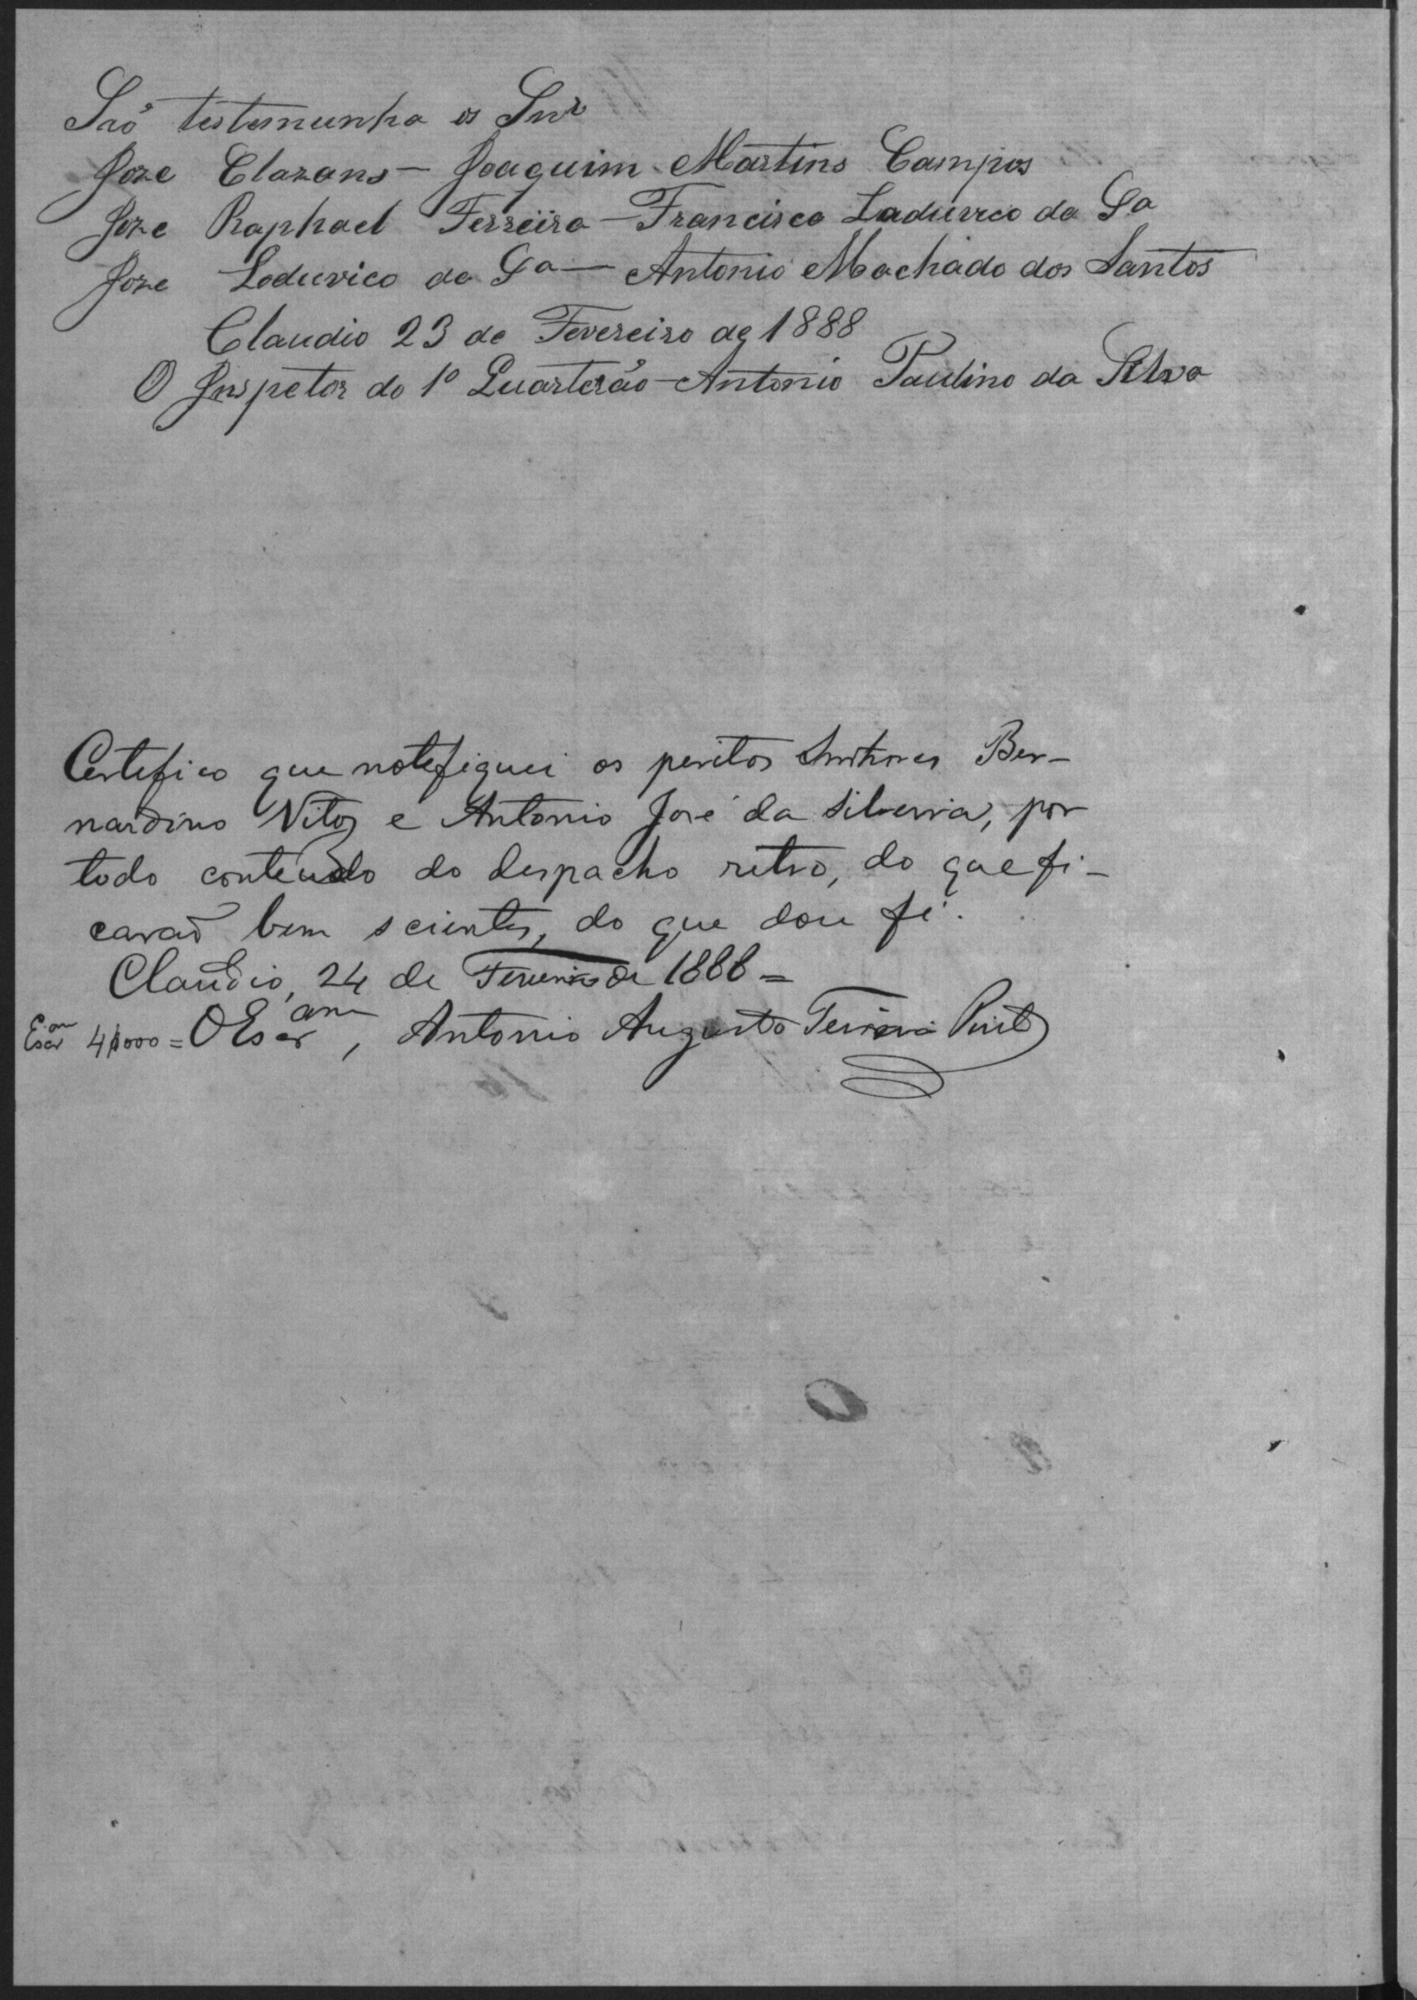 Saó testemunha os Snr
Joze Clazans — Joaquim Martins Campos
Joze Raphael Ferreira — Francisco Laduvico da Sa
Joze Loduvico da Sa — Antonio Machado dos Santos
Claudio 23 de Fevereiro de 1888
O Inspetor do 1º Quarterão — Antonio Paulino da Silva
Certefico que notefiquei os peritos Senhores Ber-
nardino Vitor e Antonio José da Silveira, por
todo conteudo do despacho retro, do que fi-
carað bem scientes, do que dou fé.
Claudio, 24 de Fevereiro de 1888 =
Escram 4$000 = O Escram, Antonio Augusto Ferreira Pinto